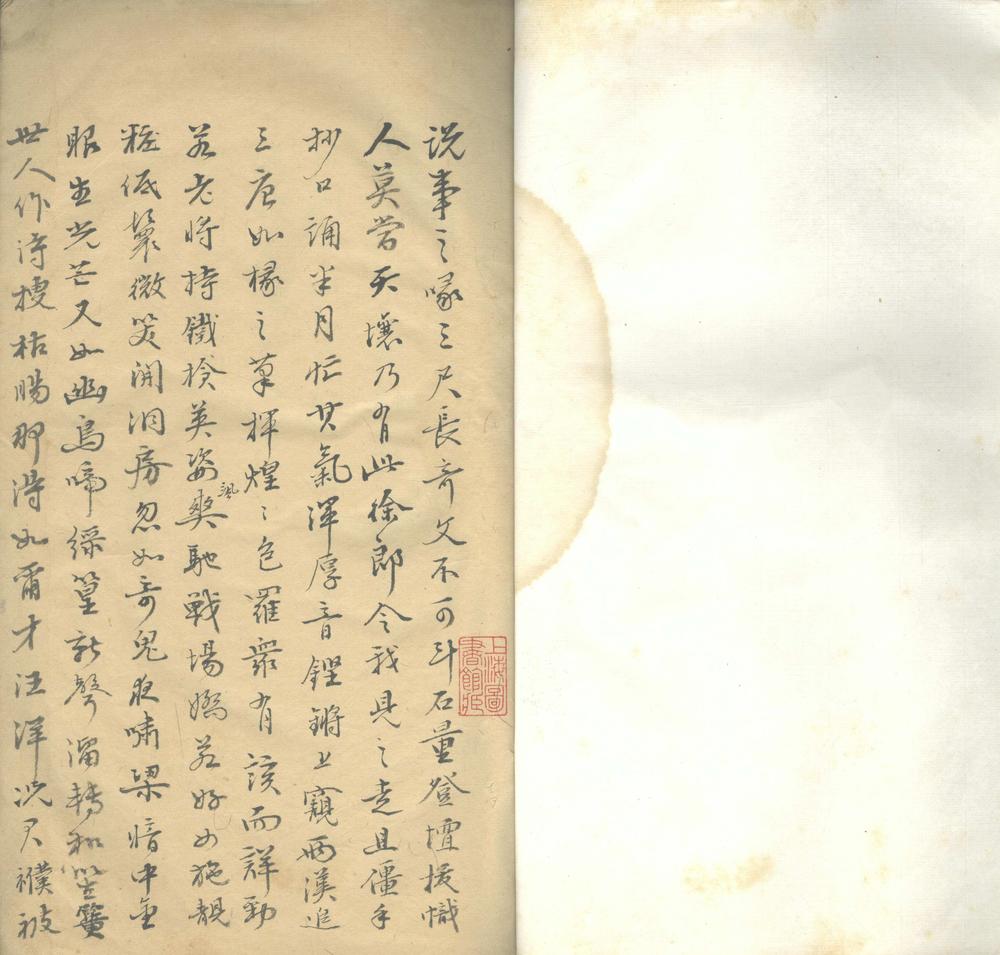 说事之喙三尺長奇文不可斗石量登壇拔幟
人莫當天壤乃有此徐郎令我見之走且僵手
抄口誦半月忙其氣渾厚音鏗鏘上窺兩漢追
三唐如椽之筆揮煌〻包羅衆有該而詳勁
若老將持鐵槍英姿颯爽馳戰場嫣若好女施靚
粧低鬟微笑開洞房忽如奇鬼夜嘯梁暗中金
眼生光芒又如幽鳥啼綠篁新聲溜轉和笙簧
世人作詩搜枯腸那得如爾才汪洋況君襆被
上海圖
書館藏